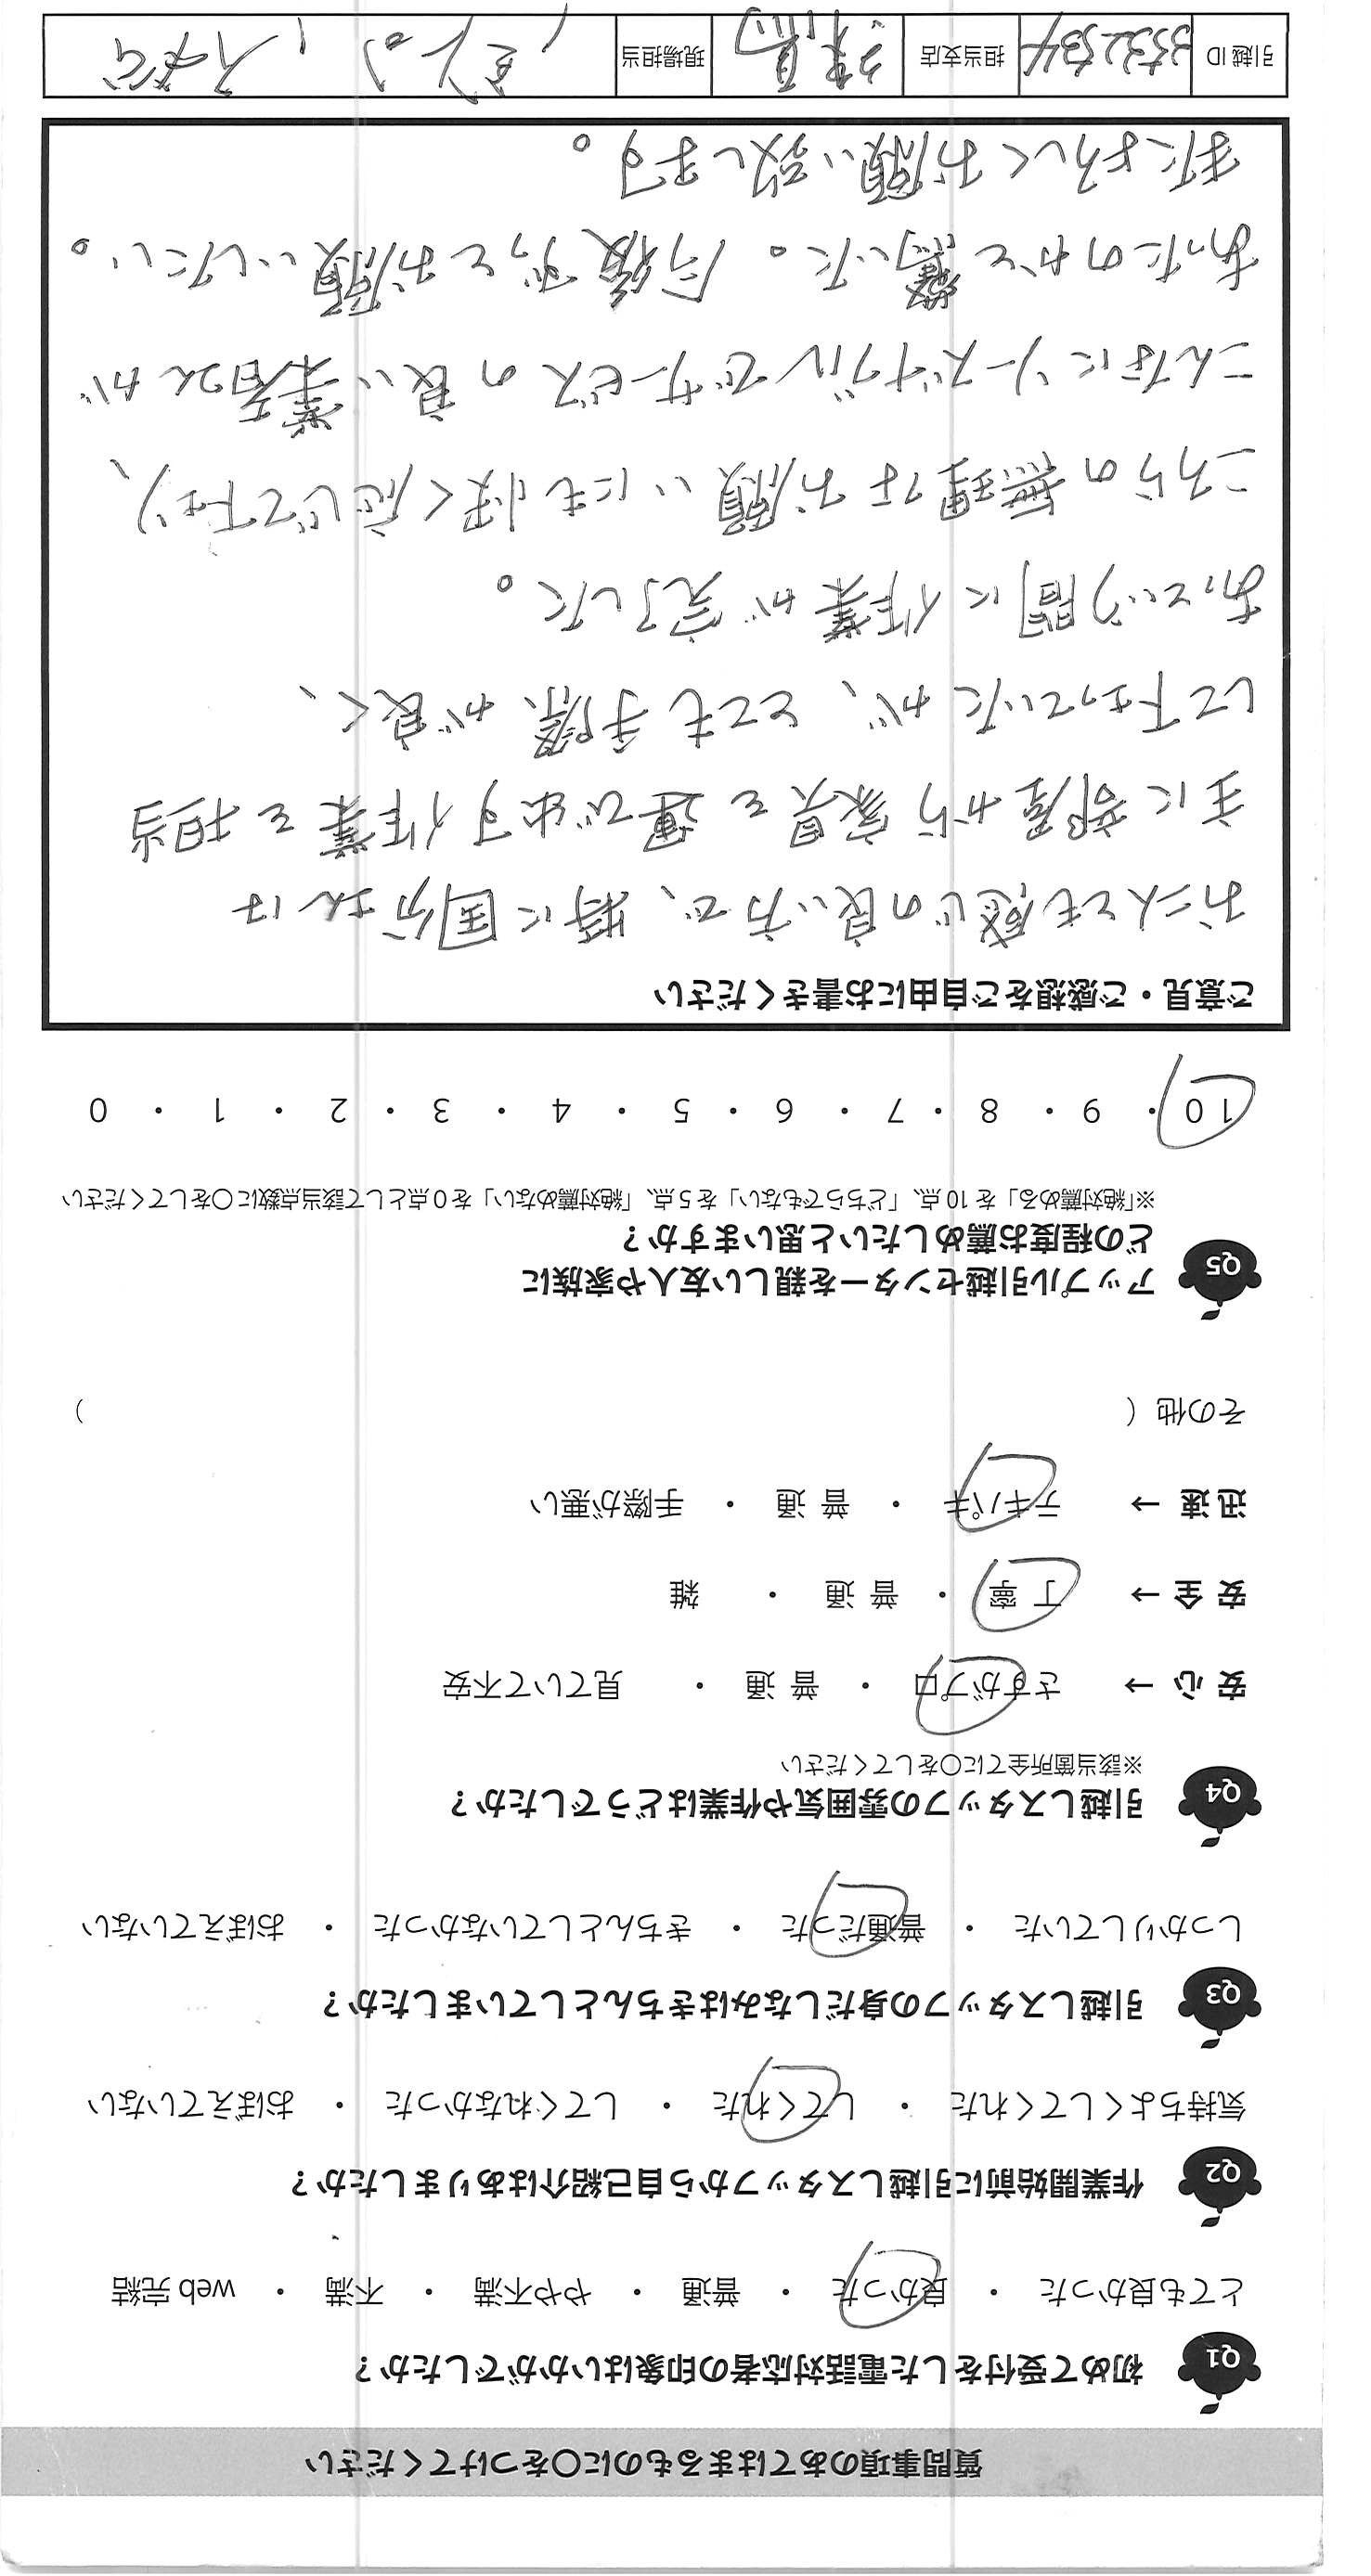 質問事項のあてはまるものに〇をつけてください
Q1 初めて受付をした電話対応者の印象はいかがでしたか？
とても良かった ・ 良かった ・ 普通 ・ やや不満 ・ 不満 ・ web 完結
Q2 作業開始前に引越しスタッフから自己紹介はありましたか？
気持ちよくしてくれた ・ してくれた ・ してくれなかった ・ おぼえていない
Q3 引越しスタッフの身だしなみはきちんとしていましたか？
しっかりしていた ・ 普通だった ・ きちんとしていなかった ・ おぼえていない
Q4 引越しスタッフの雰囲気や作業はどうでしたか？
※該当箇所全てに〇をしてください
安 心 → さすがプロ ・ 普 通 ・ 見ていて不安
安 全 → 丁 寧 ・ 普 通 ・ 雑
迅 速 → テキパキ ・ 普 通 ・ 手際が悪い
その他（ ）
Q5 アップル引越センターを親しい友人や家族に
どの程度お薦めしたいと思いますか？
※「絶対薦める」を 10 点、「どちらでもない」を 5 点、「絶対薦めない」を 0 点として該当点数に〇をしてください
10 ・ 9 ・ 8 ・ 7 ・ 6 ・ 5 ・ 4 ・ 3 ・ 2 ・ 1 ・ 0
ご意見・ご感想をご自由にお書きください
お二人とも感じの良い方で、特に国分さんは
主に部屋から家具を運び出す作業を担当
して下さっていたが、とても手際が良く、
あっという間に作業が完了した。
こちらの無理なお願いにも快く応じて下さり、
こんなにリーズナブルでサービスの良い業者さんが
あったのかと驚いた。今後ずっとお願いしたい。
またよろしくお願い致します。
引越 ID 担当支店 練馬 現場担当